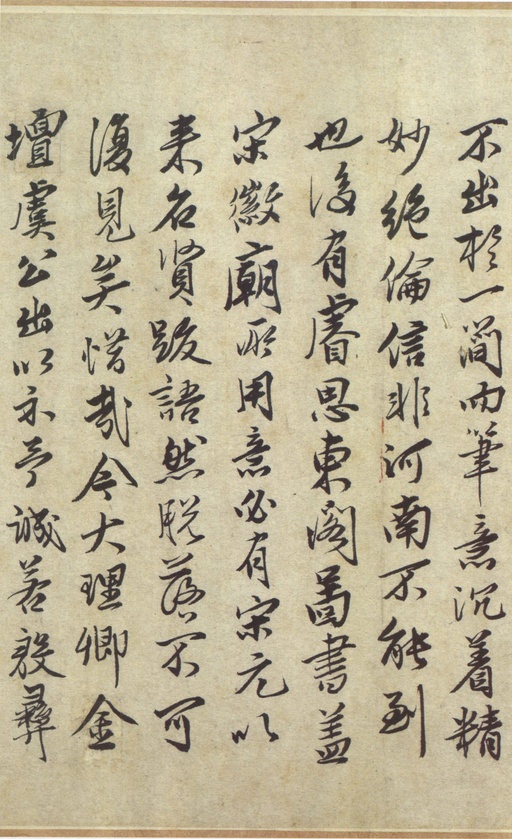 不出於一簡而筆意沉着精
妙絶倫信非河南不能到
也後有睿思東閣圖書盖
宋徽廟所用意必有宋元以
来名賢跋語然脱落不可
復見矣惜哉今大理卿金
壇虞公出以示予誠若殷彝